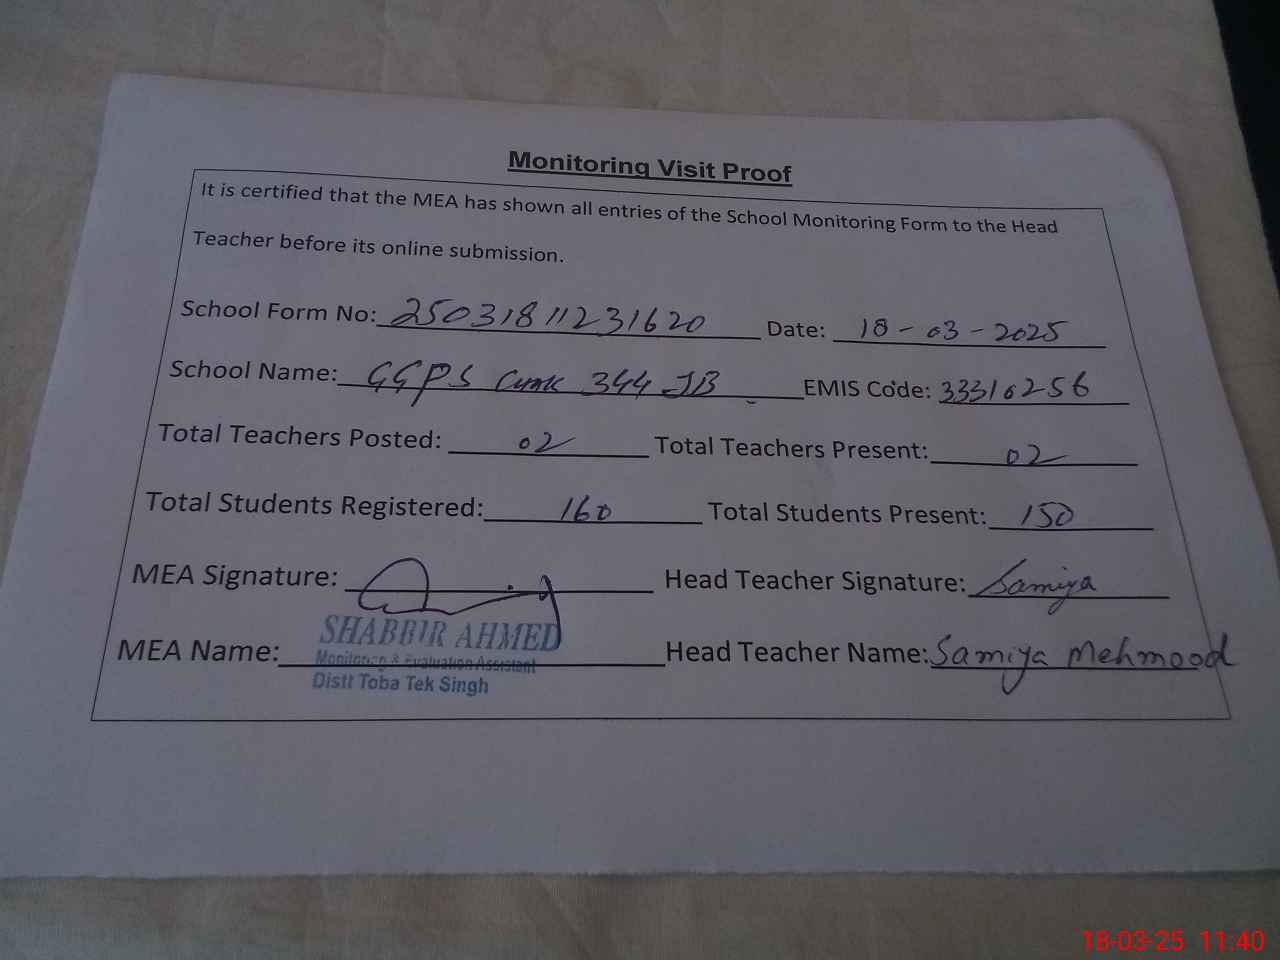 Monitoring Visit Proof
It is certified that the MEA has shown all entries of the School Monitoring Form to the Head
Teacher before its online submission.
School Form No: 25031811231620 Date: 18-03-2025
School Name: GGPS 344 JB EMIS Code: 33310256
Total Teachers Posted: 02 Total Teachers Present: 02
Total Students Registered: 160 Total Students Present: 150
MEA Signature: Head Teacher Signature: Samiya
SHABBIR AHMED
MEA Name: Monitoring & Evaluation Assistant Head Teacher Name: Samiya Mehmood
Distt Toba Tek Singh
18-03-25 11:40